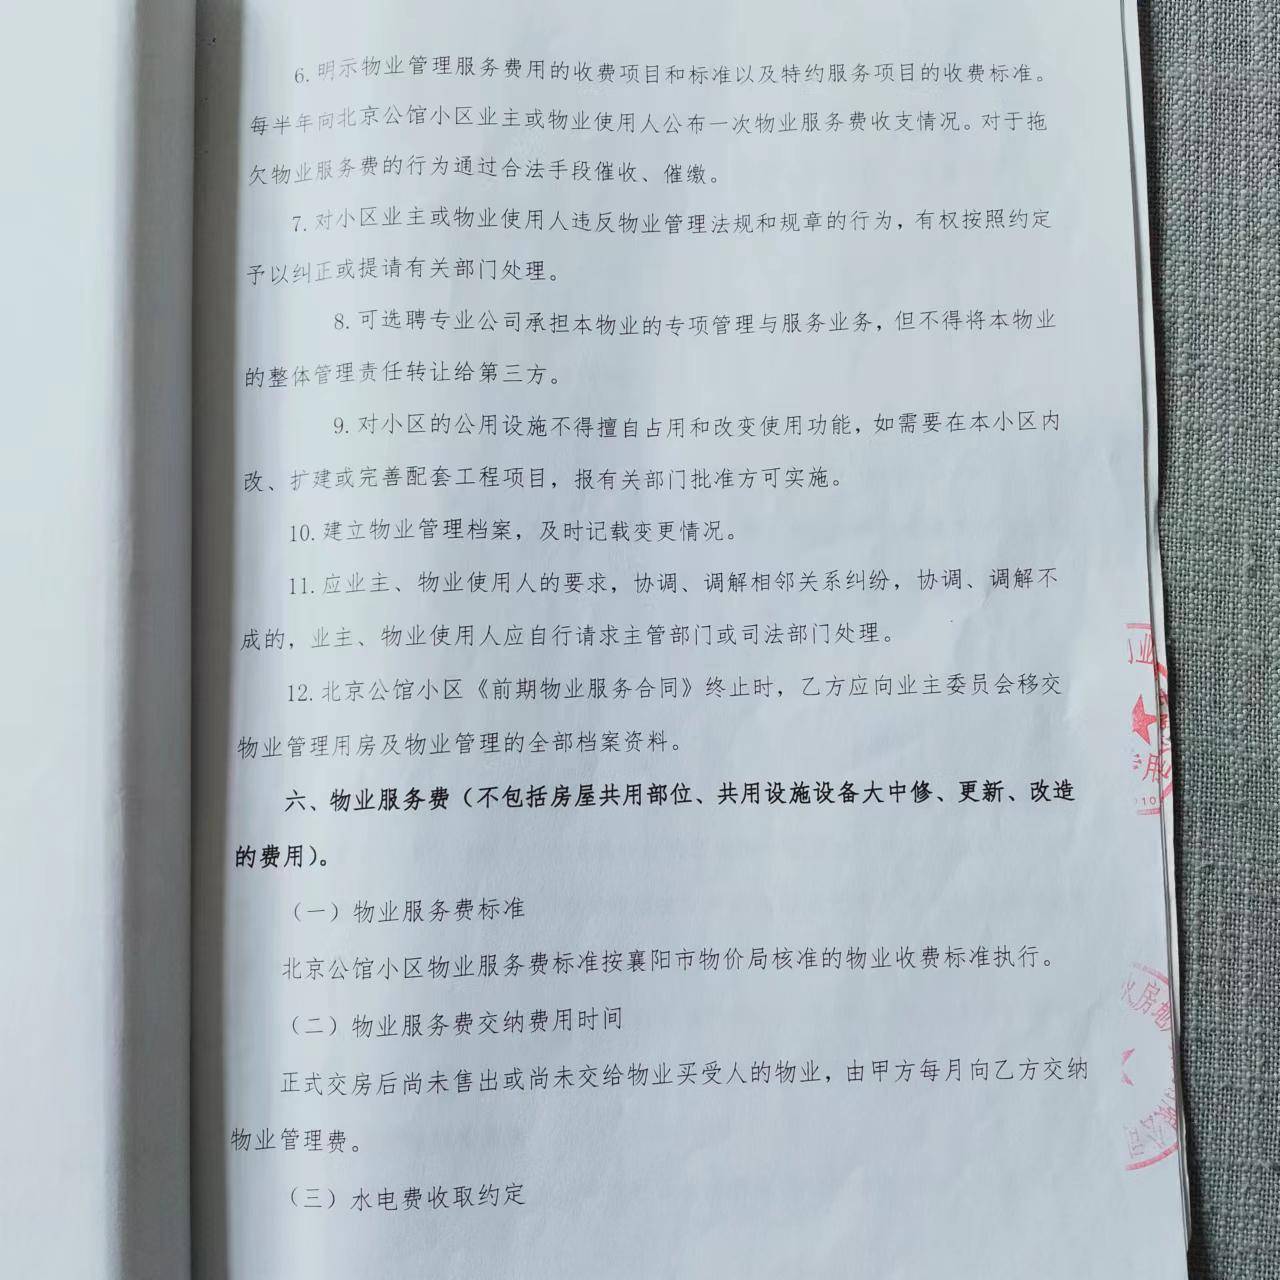 6.明示物业管理服务费用的收费项目和标准以及特约服务项目的收费标准。
每半年向北京公馆小区业主或物业使用人公布一次物业服务费收支情况。对于拖
欠物业服务费的行为通过合法手段催收、催缴。
7.对小区业主或物业使用人违反物业管理法规和规章的行为，有权按照约定
予以纠正或提请有关部门处理。
8.可选聘专业公司承担本物业的专项管理与服务业务，但不得将本物业
的整体管理责任转让给第三方。
9.对小区的公用设施不得擅自占用和改变使用功能，如需要在本小区内
改、扩建或完善配套工程项目，报有关部门批准方可实施。
10.建立物业管理档案，及时记载变更情况。
11.应业主、物业使用人的要求，协调、调解相邻关系纠纷，协调、调解不
成的，业主、物业使用人应自行请求主管部门或司法部门处理。
12.北京公馆小区《前期物业服务合同》终止时，乙方应向业主委员会移交
物业管理用房及物业管理的全部档案资料。
六、物业服务费（不包括房屋共用部位、共用设施设备大中修、更新、改造
的费用）。
（一）物业服务费标准
北京公馆小区物业服务费标准按襄阳市物价局核准的物业收费标准执行。
（二）物业服务费交纳费用时间
正式交房后尚未售出或尚未交给物业买受人的物业，由甲方每月向乙方交纳
物业管理费。
（三）水电费收取约定